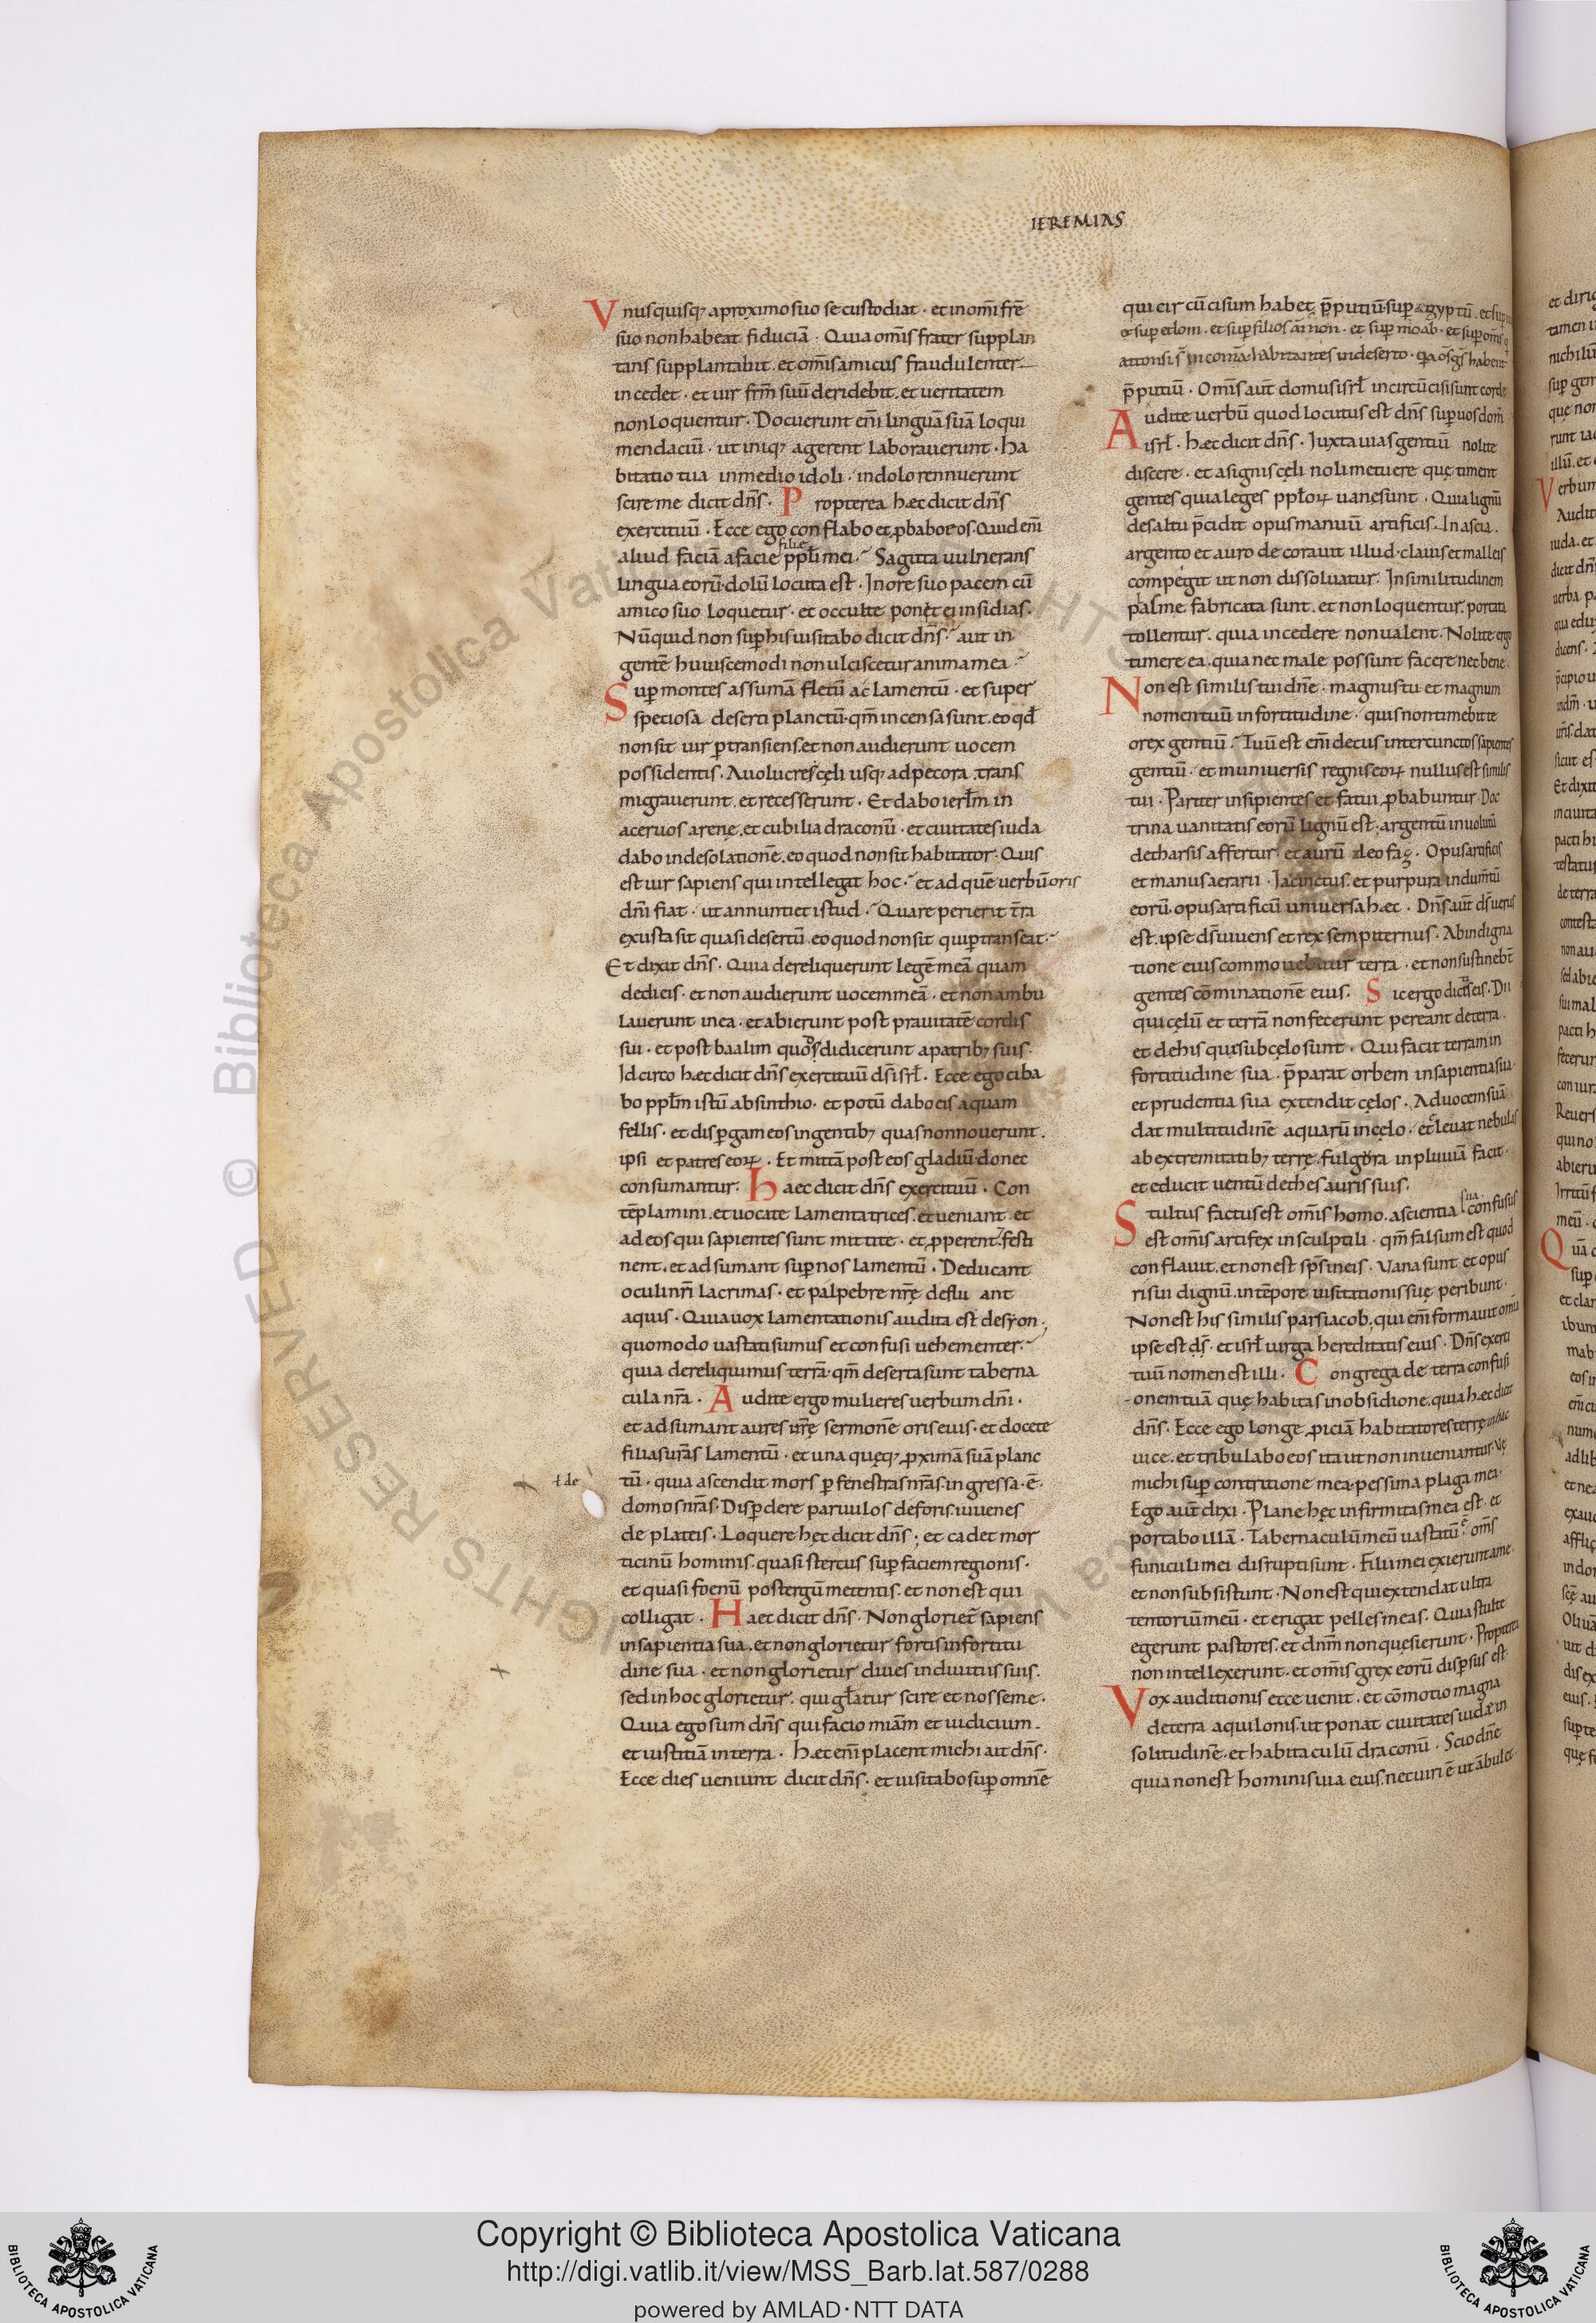 IEREMIAS
Vnusquisq; aproximo suo se custodiat · et in om̄i fr̄e
suo non habeat fiduciā · Quia om̄is frater supplan
tans supplantabit . et om̄is amicus fraudulenter
incedet · et uir fr̄m suū deridebit . et ueritatem
non loquentur · Docuerunt em̄ linguā suā loqui
mendaciū · ut iniq; agerent laborauerunt · ha
bitatio tua in medio idoli · in dolo rennuerunt
scire me dicit dn̄s · Propterea hæc dicit dn̄s
exercituū · Ecce ego conflabo et ꝓbabo eos · Quid em̄
aliud faciā a facie filię pp̄li mei · Sagitta uulnerans
lingua eorū · dolū locuta est · In ore suo pacem cū
amico suo loquetur · et occulte ponet ei insidias ·
Nūquid non sup his uisitabo dicit dn̄s · aut in
gentē huiuscemodi non ulciscetur anima mea ·
Sup montes assumā fletū ac lamentū · et super
speciosa deserti planctū · qm̄ incensa sunt . eo qd̄
non sit uir ptransiens . et non audierunt uocem
possidentis · A uolucre cęli usq; ad pecora . trans
migrauerunt . et recesserunt · Et dabo ierl̄m in
aceruos arenę . et cubilia draconū · et ciuitates iuda
dabo in desolationē . eo quod non sit habitator · Quis
est uir sapiens qui intellegat hoc · et ad quē uerbū oris
dn̄i fiat · ut annuntiet istud · Quare perierit t̄ra
exusta sit quasi desertū . eo quod non sit qui ptranseat ·
Et dixit dn̄s · Quia dereliquerunt legē meā quam
dedi eis · et non audierunt uocem meā · et non ambu
lauerunt in ea · et abierunt post prauitatē cordis
sui · et post baalim quos didicerunt a patrib; suis ·
Idcirco hæc dicit dn̄s exercituū ds̄ isrl̄ · Ecce ego ciba
bo pp̄lm istū absinthio · et potū dabo eis aquam
fellis · et dispgam eos in gentib; quas non nouerunt ·
ipsi et patres eoꝝ · Et mittā post eos gladiū · donec
consumantur · Haec dicit dn̄s exercituū · Con
tēplamini . et uocate lamentatrices . et ueniant . et
ad eos qui sapientes sunt mittite · et ꝓperent · festi
nent . et adsumant sup nos lamentū · Deducant
oculi nr̄i lacrimas · et palpebre nr̄ę deflu ant
aquis · Quia uox lamentationis audita est de syon ·
quomodo uastati sumus et confusi uehementer ·
quia dereliquimus terrā · qm̄ deserta sunt taberna
cula nr̄a · Audite ergo mulieres uerbum dn̄i ·
et adsumant aures ur̄ę sermonē oris eius · et docete
filias ur̄as lamentū · et una quęq; ꝓximā suā planc
tū · quia ascendit mors p fenestras nr̄as . ingressa · ē ·
ł de
domos nr̄as · Dispdere paruulos deforis . iuuenes
de plateis · Loquere hęc dicit dn̄s ; et cadet mor
ticinū hominis . quasi stercus sup faciem regionis ·
et quasi foenū post ergū metentis . et non est qui
colligat · Haec dicit dn̄s · Non glorietr̄ sapiens
in sapientia sua . et non glorietur fortis in fortitu
dine sua · et non glorietur diues in diuitiis suis ·
sed in hoc glorietur · qui gl̄atur scire et nosse me ·
Quia ego sum dn̄s qui facio mīam et iudicium ·
et iustitiā in terra · Hæc em̄ placent michi ait dn̄s ·
Ecce dies ueniunt dicit dn̄s · et uisitabo sup omnē
qui circūcisum habet p̄putiū · sup ęgyptū . et sup
et sup edom . et sup filios am̄on · et sup moab · et sup om̄s q
attonsi s̄ in comā habitantes in deserto · q̄a om̄s gentes habent
p̄putiū · Om̄is aut̄ domus isrl̄ incircūcisi sunt corde
Audite uerbū quod locutus est dn̄s sup uos dom̄
isrl̄ · Hæc dicit dn̄s · Iuxta uias gentiū nolite
discere · et a signis cęli noli metuere quę timent
gentes quia leges pp̄loꝝ uane sunt · Quia lignū
de saltu p̄cidit opus manuū artificis . In ascia .
argento et auro decorauit illud · clauis et malleis
compegit ut non dissoluatur · In similitudinem
palme fabricata sunt . et non loquentur · portata
tollentur . quia incedere non ualent · Nolite ergo
timere ea . quia nec male possunt facere nec bene ·
Non est similis tui dn̄e · magnus tu et magnum
nomen tuū in fortitudine · quis non timebit te
o rex gentiū · Tuū est em̄ decus inter cunctos sapientes
gentiū · et in uniuersis regnis eoꝝ nullus est similis
tui · Pariter insipientes et fatui ꝓbabuntur · Doc
trina uanitatis eorū lignū est · argentū inuolutū
de tharsis affertur · et aurū de ofaz · Opus artificis
et manus aerarii · Iacinctus . et purpura indum̄tū
eorū . opus artificū uniuersa hæc · Dn̄s aut̄ ds̄ uerus
est . ipse ds̄ uiuens et rex sempiternus · Ab indigna
tione eius commouebitur terra · et non sustinebt̄
gentes cōminationē eius · Sic ergo dicetis eis · Dii
qui cęlū et terrā non fecerunt pereant de terra ·
et de his qui sub cęlo sunt · Qui facit terram in
fortitudine sua · p̄parat orbem in sapientia sua ·
et prudentia sua extendit cęlos · Ad uocem suā
dat multitudinē aquarū in cęlo · et eleuat nebulas
ab extremitatib; terrę . fulgora in pluuiā facit ·
et educit uentū de thesauris suis ·
Stultus factus est om̄is homo . a scientia sua · confusus
est om̄is artifex in sculptili · qm̄ falsum est quod
conflauit . et non est sps̄ in eis · Vana sunt et opus
risui dignū . in tēpore uisitationis suę peribunt ·
Non est his similis pars iacob . qui em̄ formauit omnia
ipse est ds̄ · et isrl̄ uirga hereditatis eius · Dn̄s exerci
tuū nomen est illi · Congrega de terra confusi
onem tuā quę habitas in obsidione . quia hæc dicit
dn̄s · Ecce ego longe ꝓiciā habitatores terrę in hac
uice . et tribulabo eos ita ut non inueniantur · Vę
michi sup contritione mea . pessima plaga mea ·
Ego aut̄ dixi · Plane hęc infirmitas mea est . et
portabo illā · Tabernaculū meū uastatū ē · om̄s
funiculi mei disrupti sunt · Filii mei exierunt a me ·
et non subsistunt · Non est qui extendat ultra
tentoriū meū · et erigat pelles meas · Quia stulte
egerunt pastores . et dn̄m non quesierunt · Propterea
non intellexerunt · et om̄is grex eorū dispsus est ·
Vox auditionis ecce uenit . et cōmotio magna
de terra aquilonis . ut ponat ciuitates iudæ in
solitudinē . et habitaculū draconū · Scio dn̄e
quia non est hominis uia eius . nec uiri ē ut ābulet
Copyright © Biblioteca Apostolica Vaticana
http://digi.vatlib.it/view/MSS_Barb.lat.587/0288
powered by AMLAD·NTT DATA
BIBLIOTECA APOSTOLICA VATICANA
BIBLIOTECA APOSTOLICA VATICANA